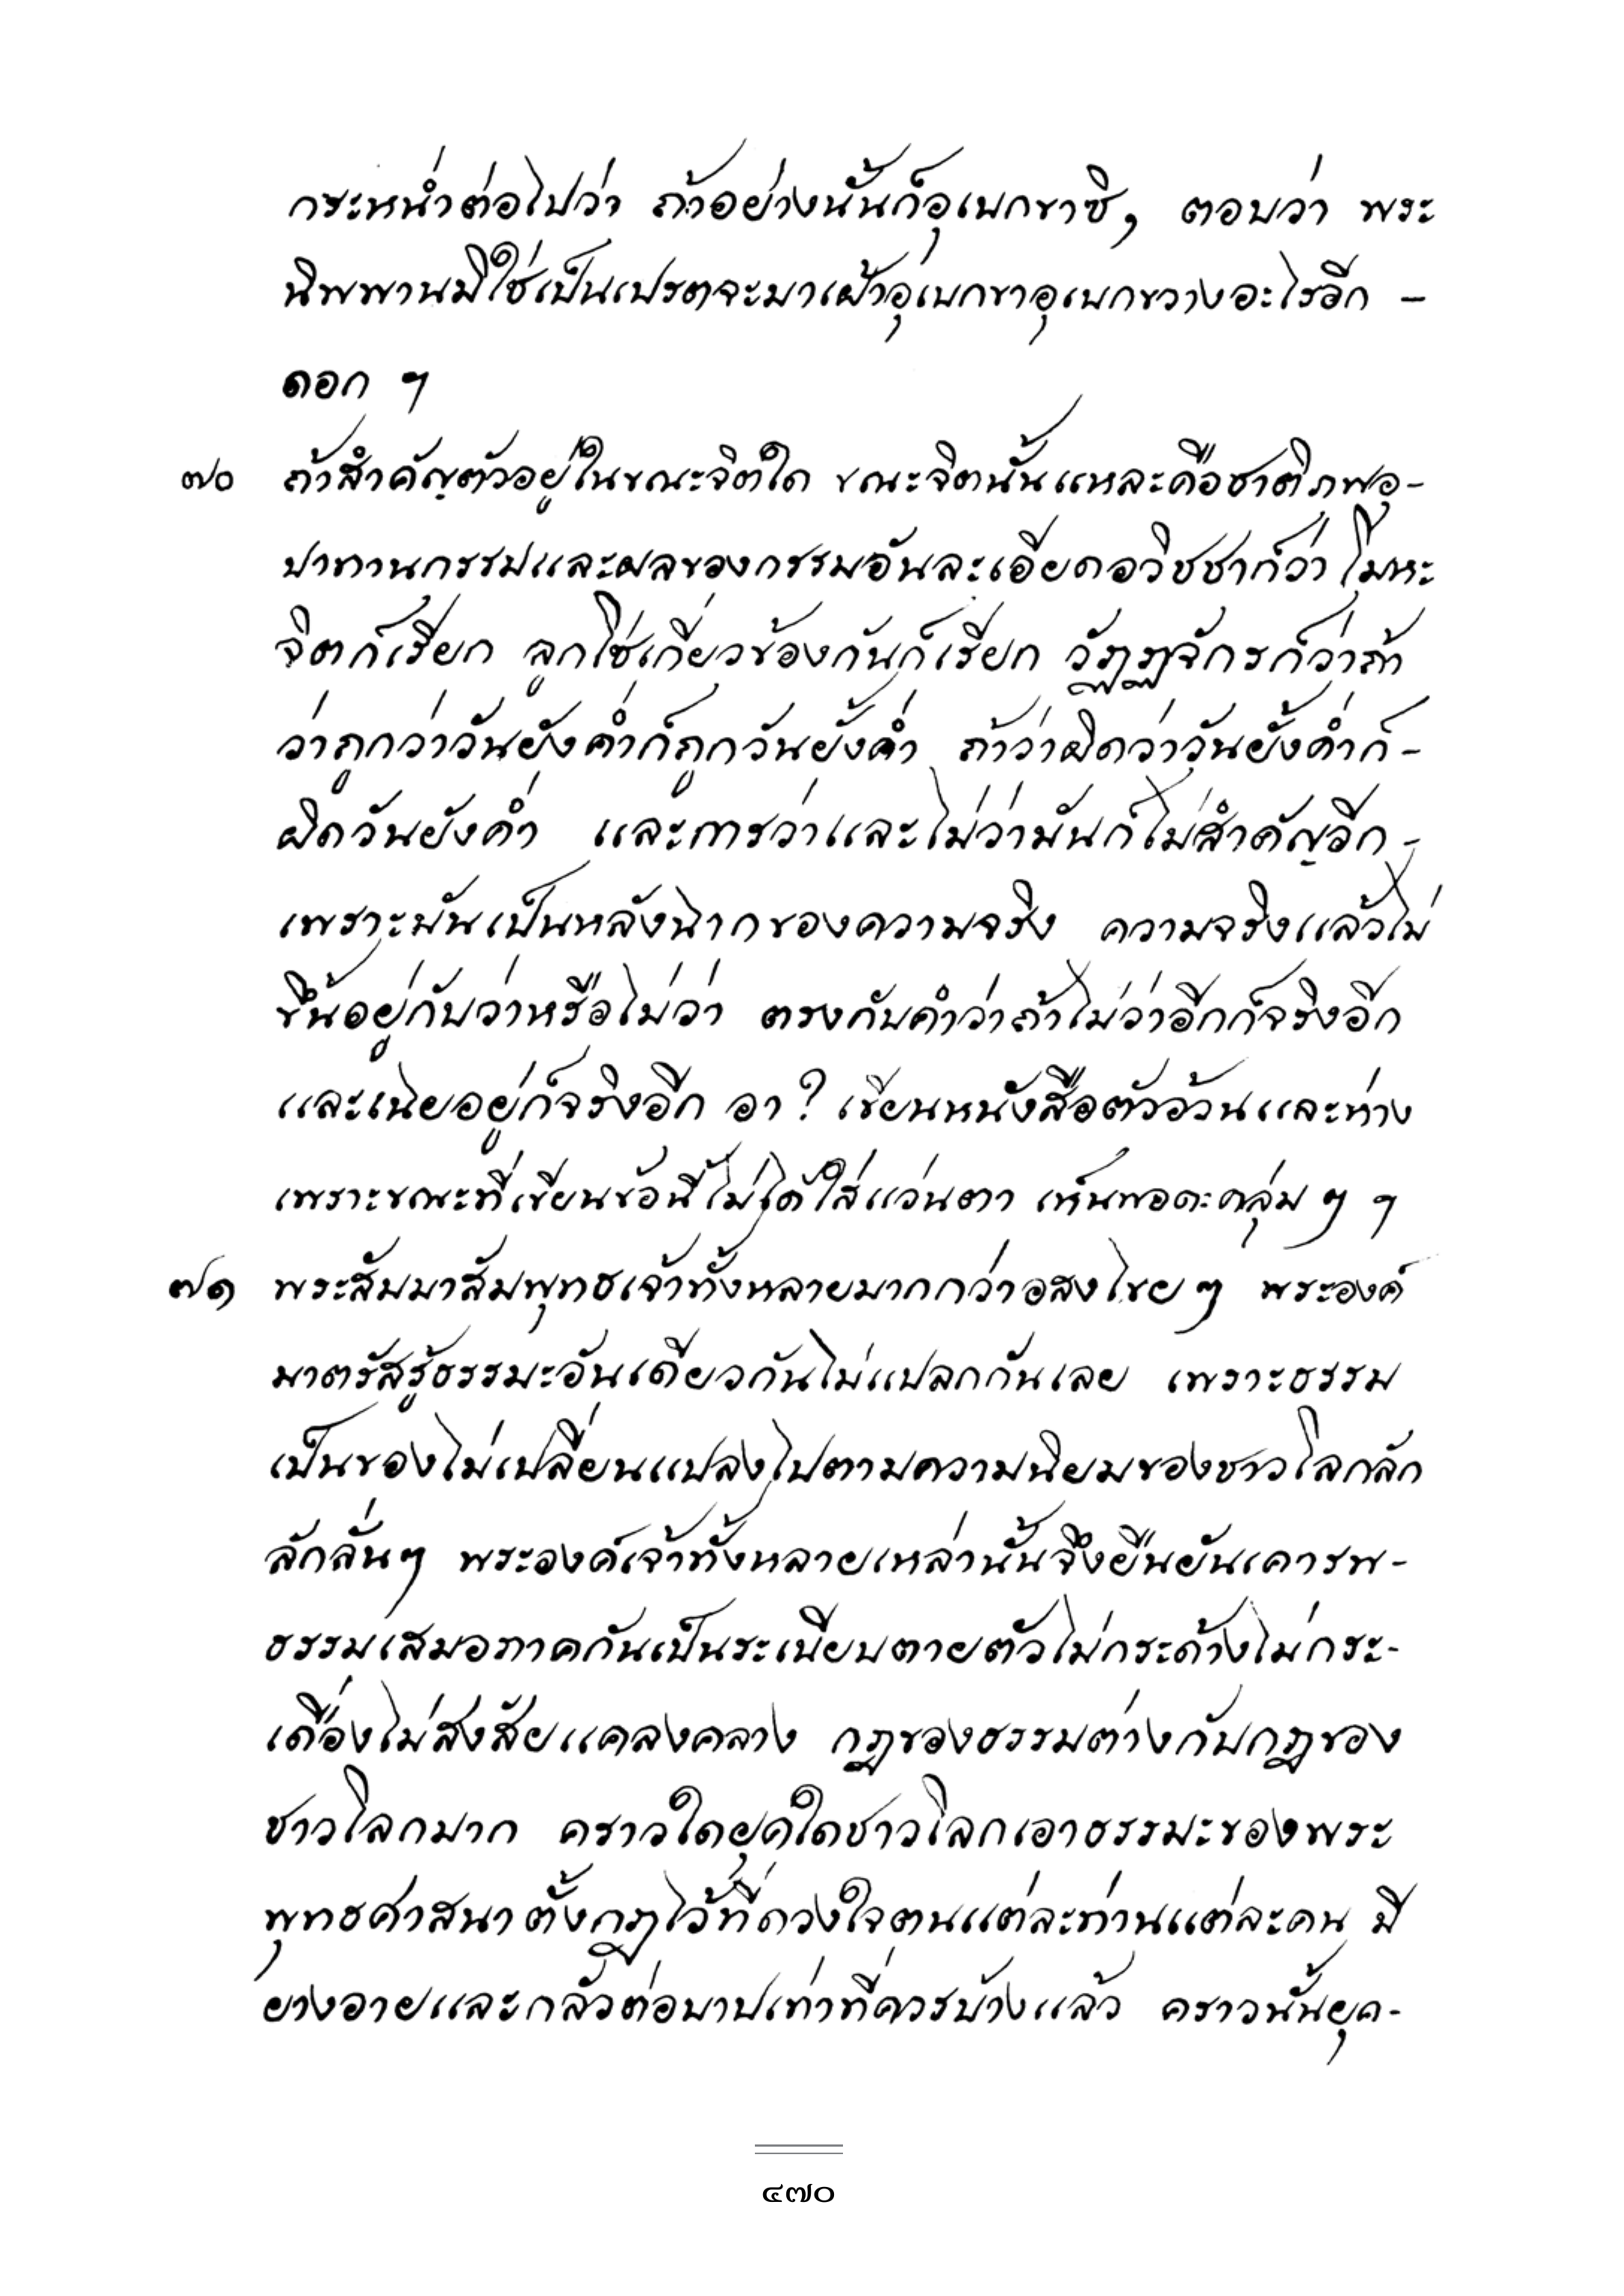 กระหน่ำต่อไปว่า ถ้าอย่างนั้นก็อุเบกขาซิ, ตอบว่า พระ
นิพพานมิใช่เป็นเปรตจะมาเฝ้าอุเบกขาอุเบกขวางอะไรอีก -
ดอก ฯ
๗๐ ถ้าสำคัญตัวอยู่ในขณะจิตใด ขณะจิตนั้นแหละคือชาติภพอุ-
ปาทานกรรมและผลของกรรมอันละเอียดอวิชชาก็ว่า โมหะ
จิตก็เรียก ลูกโซ่เกี่ยวข้องกันก็เรียก วัฏฏจักรก็ว่าถ้า
ว่าถูกว่าวันยังค่ำก็ถูกวันยังค่ำ ถ้าว่าผิดว่าวันยังค่ำก็-
ผิดวันยังค่ำ และการว่าและไม่ว่ามันก็ไม่สำคัญอีก-
เพราะมันเป็นหลังฉากของความจริง ความจริงแล้วไม่
ขึ้นอยู่กับว่าหรือไม่ว่า ตรงกับคำว่าถ้าไม่ว่าอีกก็จริงอีก
และเฉยอยู่ก็จริงอีก อา? เขียนหนังสือตัวอ้วนและห่าง
เพราะขณะที่เขียนข้อนี้ไม่ได้ใส่แว่นตา เห็นพอตะคลุ่มๆ ฯ
๗๑ พระสัมมาสัมพุทธเจ้าทั้งหลายมากกว่าอสงไขยๆ พระองค์
มาตรัสรู้ธรรมะอันเดียวกันไม่แปลกกันเลย เพราะธรรม
เป็นของไม่เปลี่ยนแปลงไปตามความนิยมของชาวโลกลัก
ลักลั่นๆ พระองค์เจ้าทั้งหลายเหล่านั้นจึงยืนยันเคารพ-
ธรรมเสมอภาคกันเป็นระเบียบตายตัวไม่กระด้างไม่กระ-
เดื่องไม่สงสัยแคลงคลาง กฏของธรรมต่างกับกฏของ
ชาวโลกมาก คราวใดยุคใดชาวโลกเอาธรรมะของพระ
พุทธศาสนาตั้งกฏไว้ที่ดวงใจตนแต่ละท่านแต่ละคน มี
ยางอายและกลัวต่อบาปเท่าที่ควรบ้างแล้ว คราวนั้นยุค-
๔๗๐